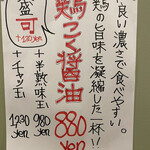 良い濃さで食べやすい。
鶏の旨味を凝縮した一杯!!
鶏こく醤油
880
yen
盛可
+120yen
+半熟味玉
980
yen
+チャン玉
1230
yen